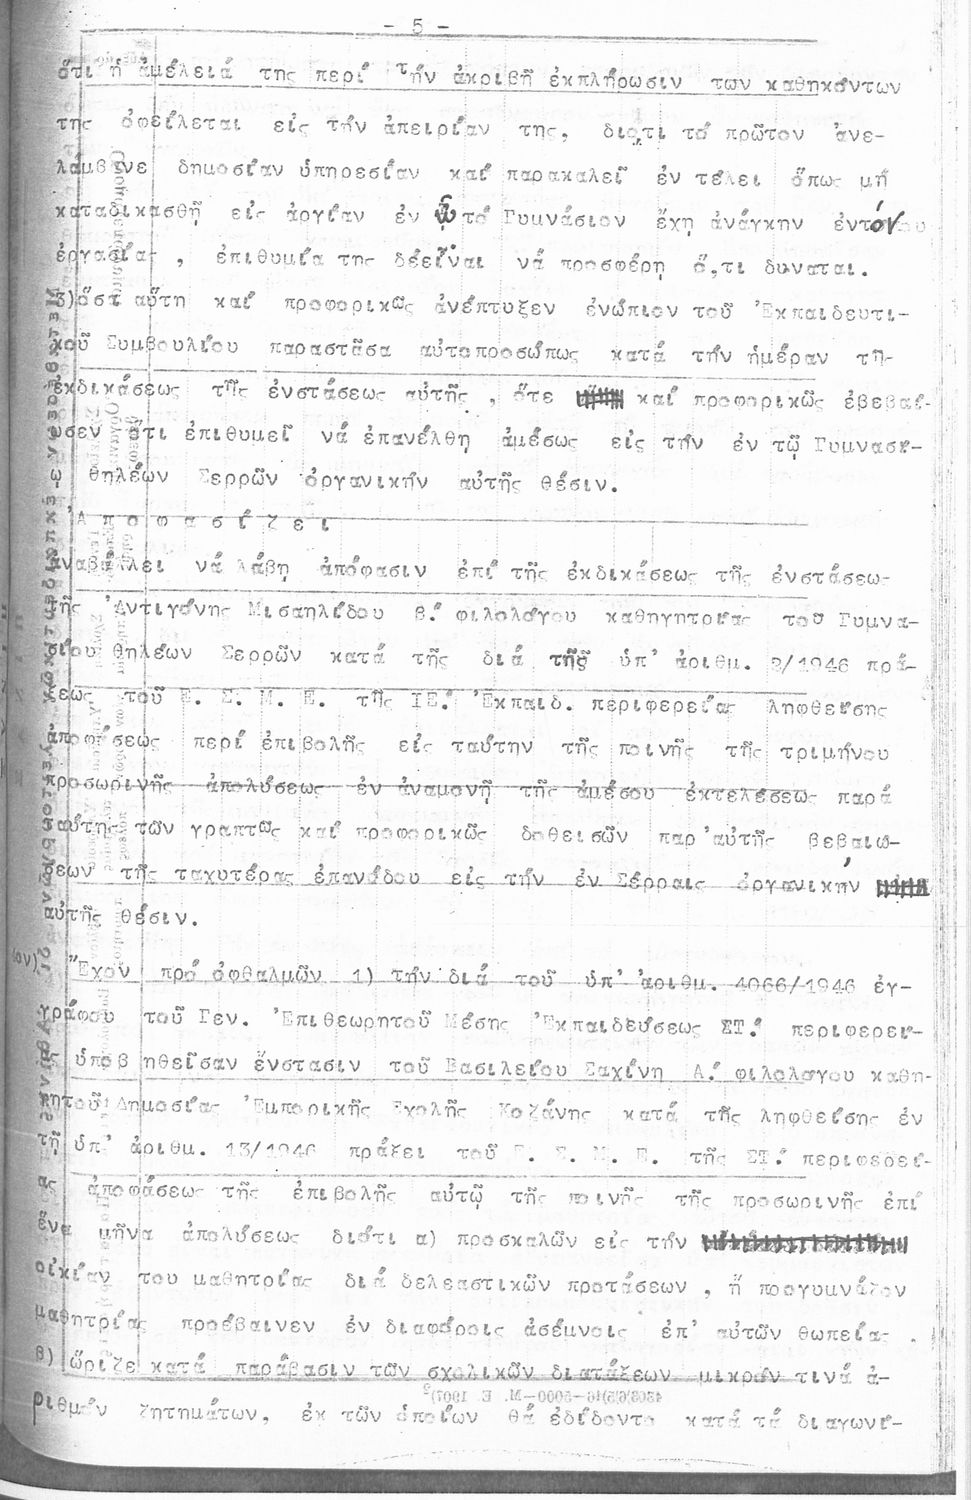 - 5 -
ὅτι ἡ ἀμέλειά της περί τήν ἀκριβῆ ἐκπλήρωσιν των καθηκόντων
της ὀφείλεται εἰς τήν ἀπειρίαν της, διότι τό πρῶτον ἀνε-
λάμβανε δημοσίαν ὑπηρεσίαν καί παρακαλεῖ ἐν τέλει ὅπως μή
καταδικασθῇ εἰς ἀργίαν ἐν ᾧ τό Γυμνάσιον ἔχη ἀνάγκην ἐντόνου
ἐργασίας , ἐπιθυμία της δέ εἶναι νά προσφέρη ὅ,τι δυναται.
3) αὕτη καί προφορικῶς ἀνέπτυξεν ἐνώπιον τοῦ Ἐκπαιδευτι-
κοῦ Συμβουλίου παραστᾶσα αὐτοπροσώπως κατά τήν ἡμέραν τῆς
ἐκδικάσεως τῆς ἐνστάσεως αὐτῆς , ὅτε καί προφορικῶς ἐβεβαί-
ωσεν ὅτι ἐπιθυμεῖ νά ἐπανέλθη ἀμέσως εἰς τήν ἐν τῷ Γυμνασί-
ῳ θηλέων Σερρῶν ὀργανικήν αὐτῆς θέσιν.
Ἀ π ο φ α σ ί ζ ε ι
Ἀναβάλλει νά λάβη ἀπόφασιν ἐπί τῆς ἐκδικάσεως τῆς ἐνστάσεως
τῆς Ἀντιγόνης Μισαηλίδου β.' φιλολόγου καθηγητρίας τοῦ Γυμνα-
σίου θηλέων Σερρῶν κατά τῆς διά τῆς ὑπ' ἀριθμ. 3/1946 πρά-
ξεως τοῦ Ε. Σ. Μ. Ε. τῆς ΙΕ.' Ἐκπαιδ. περιφερείας ληφθείσης
ἀποφάσεως περί ἐπιβολῆς εἰς ταύτην τῆς ποινῆς τῆς τριμήνου
προσωρινῆς ἀπολύσεως ἐν ἀναμονῇ τῆς ἀμέσου ἐκτελέσεως παρά
ταύτης τῶν γραπτῶς καί προφορικῶς δοθεισῶν παρ'αὐτῆς βεβαιώ-
σεων τῆς ταχυτέρας ἐπανόδου εἰς τήν ἐν Σέρραις ὀργανικήν
αὐτῆς θέσιν.
Ἔχον πρό ὀφθαλμῶν 1) τήν διά τοῦ ὑπ' ἀριθμ. 4066/1946 ἐγ-
γράφου τοῦ Γεν. Ἐπιθεωρητοῦ Μέσης Ἐκπαιδεύσεως ΣΤ.' περιφερεί-
ας ὑποβ ηθεῖσαν ἔνστασιν τοῦ Βασιλείου Σαχίνη Α.' φιλολόγου καθη-
γητοῦ Δημοσίας Ἐμπορικῆς Σχολῆς Κοζάνης κατά τῆς ληφθείσης ἐν
τῇ ὑπ' ἀριθμ. 13/1946 πράξει τοῦ Ε. Σ. Μ. Ε. τῆς ΣΤ.' περιφερεί-
ας ἀποφάσεως τῆς ἐπιβολῆς αὐτῷ τῆς ποινῆς τῆς προσωρινῆς ἐπί
ἕνα μῆνα ἀπολύσεως διότι α) προσκαλῶν εἰς τήν
οἰκίαν του μαθητρίας διά δελεαστικῶν προτάσεων , ἤ προγυμνάζον
μαθητρίας προέβαινεν ἐν διαφόροις ἀσέμνοις ἐπ' αὐτῶν θωπείας .
β) ὥριζε κατά παράβασιν τῶν σχολικῶν διατάξεων μικρόν τινά ἀ-
ριθμόν ζητημάτων, ἐκ τῶν ὁποίων θά ἐδίδοντο κατά τά διαγωνί-